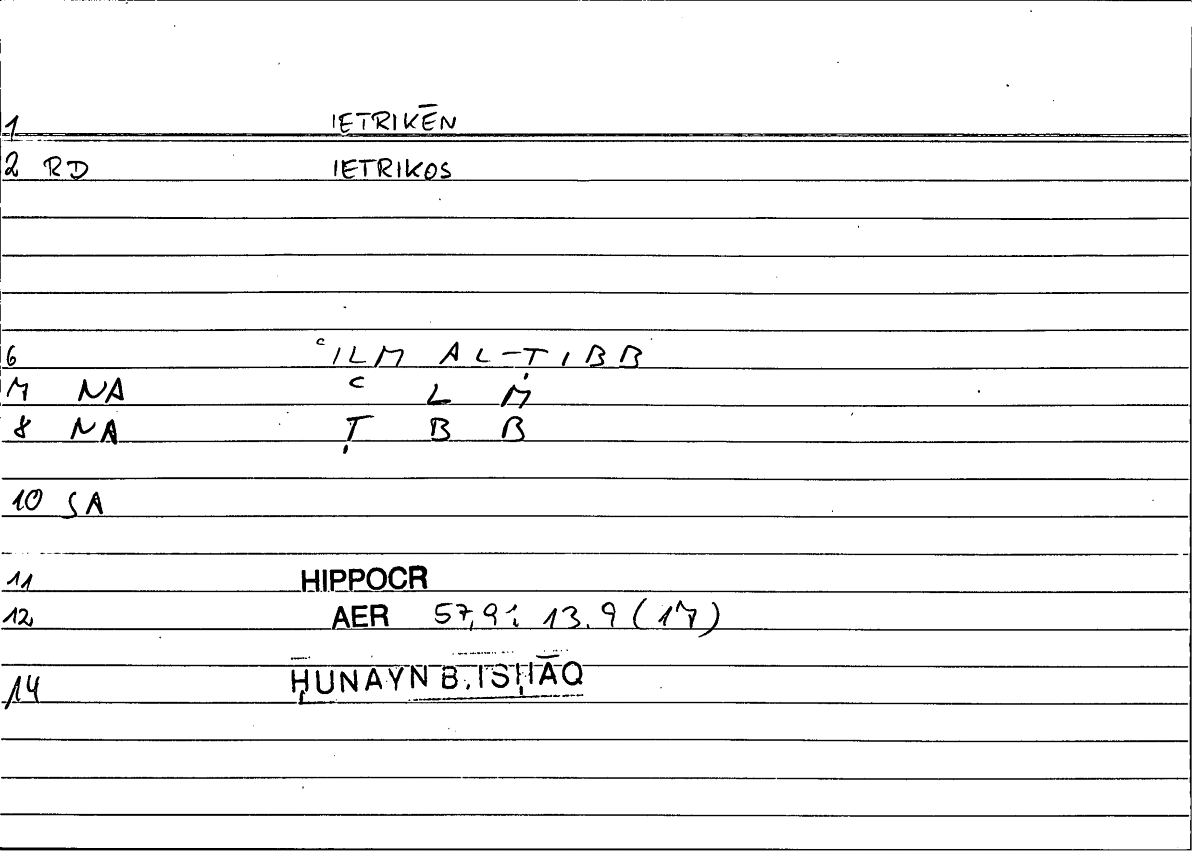 1 IETRIKĒN
2 RD IETRIKOS
6 ʿILM AL-ṬIBB
7 NA ʿ L M
8 NA Ṭ B B
10 SA
11 HIPPOCR
12 AER 57,9; 13.9 (17)
14 ḤUNAYN B. ISḤĀQ